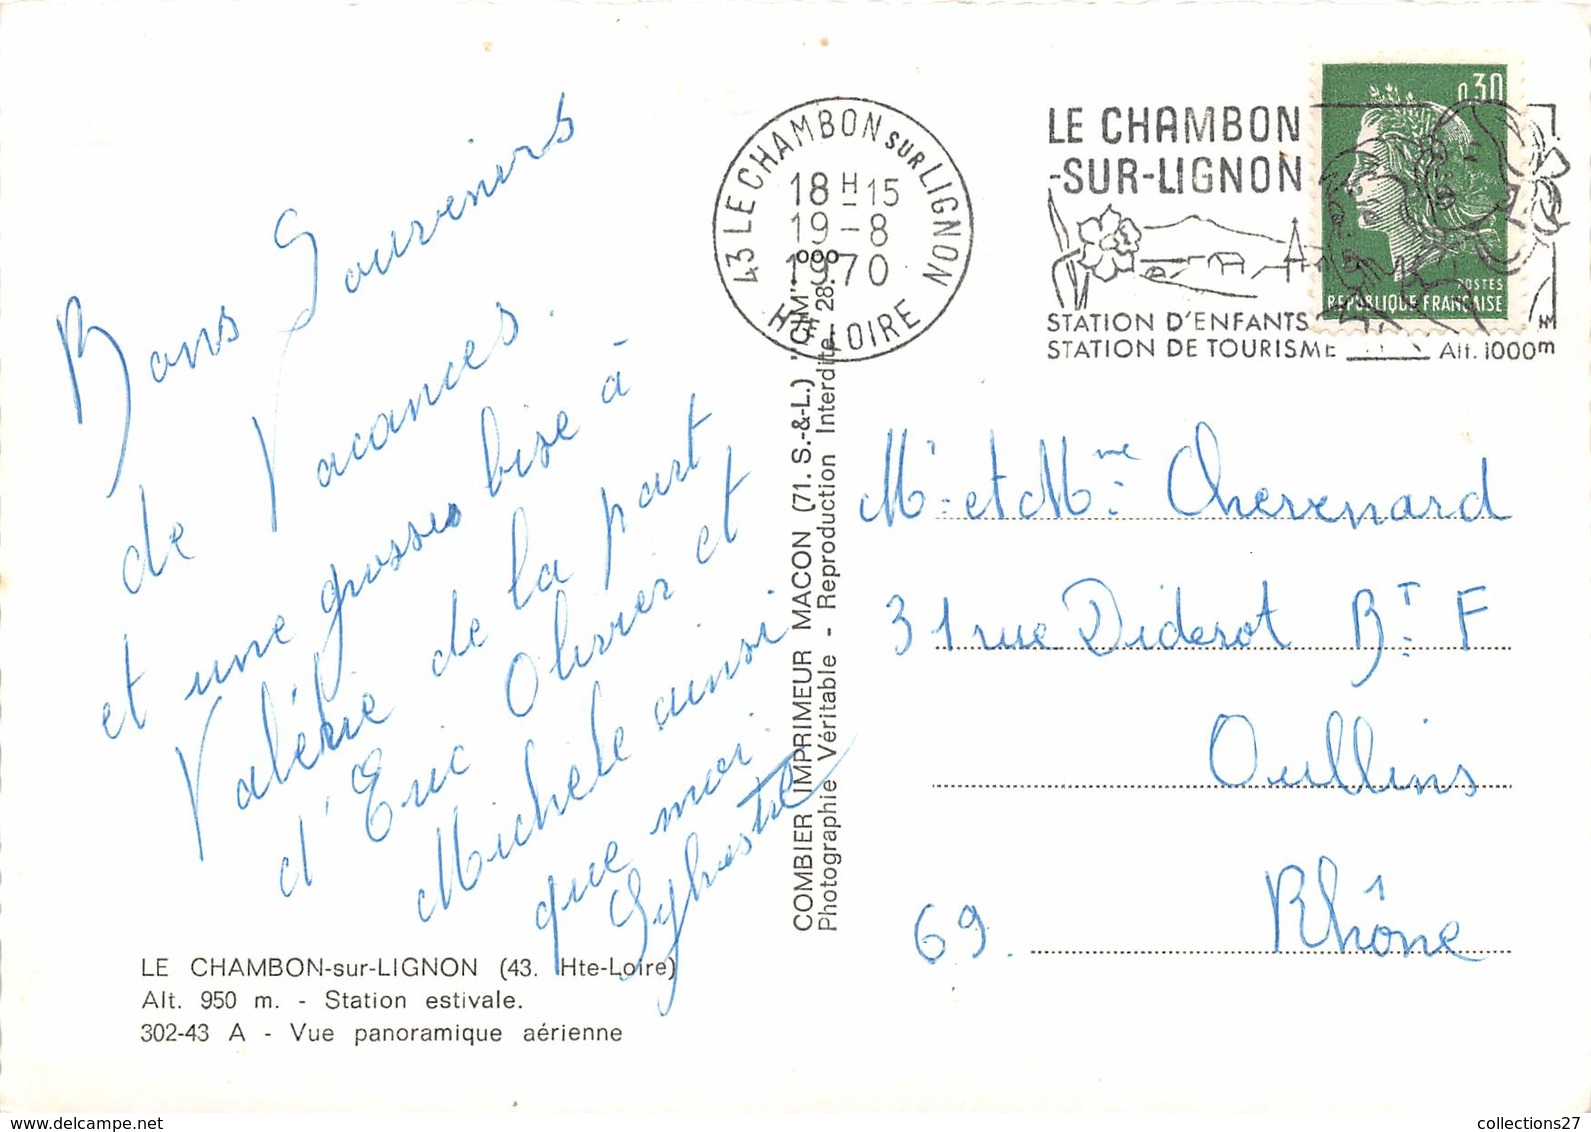 Bons Souvenirs
de Vacances.
et une grosses bise à
Valérie de la part
d'Eric Olivier et
Michèle ainsi
que moi.
Sylvestre
LE CHAMBON-sur-LIGNON (43. Hte-Loire)
Alt. 950 m. - Station estivale.
302-43 A - Vue panoramique aérienne
COMBIER IMPRIMEUR MACON (71. S.-&-L.) "CIM"
Photographie Véritable - Reproduction Interdite 28.
43 LE CHAMBON sur LIGNON
18 H 15
19-8
1970
HTE LOIRE
LE CHAMBON
-SUR-LIGNON
STATION D'ENFANTS
STATION DE TOURISME Alt. 1000m
0,30
POSTES
REPUBLIQUE FRANCAISE
Mr et Mme Chevenard
31 rue Diderot BT F
Oullins
69. Rhône
collections27